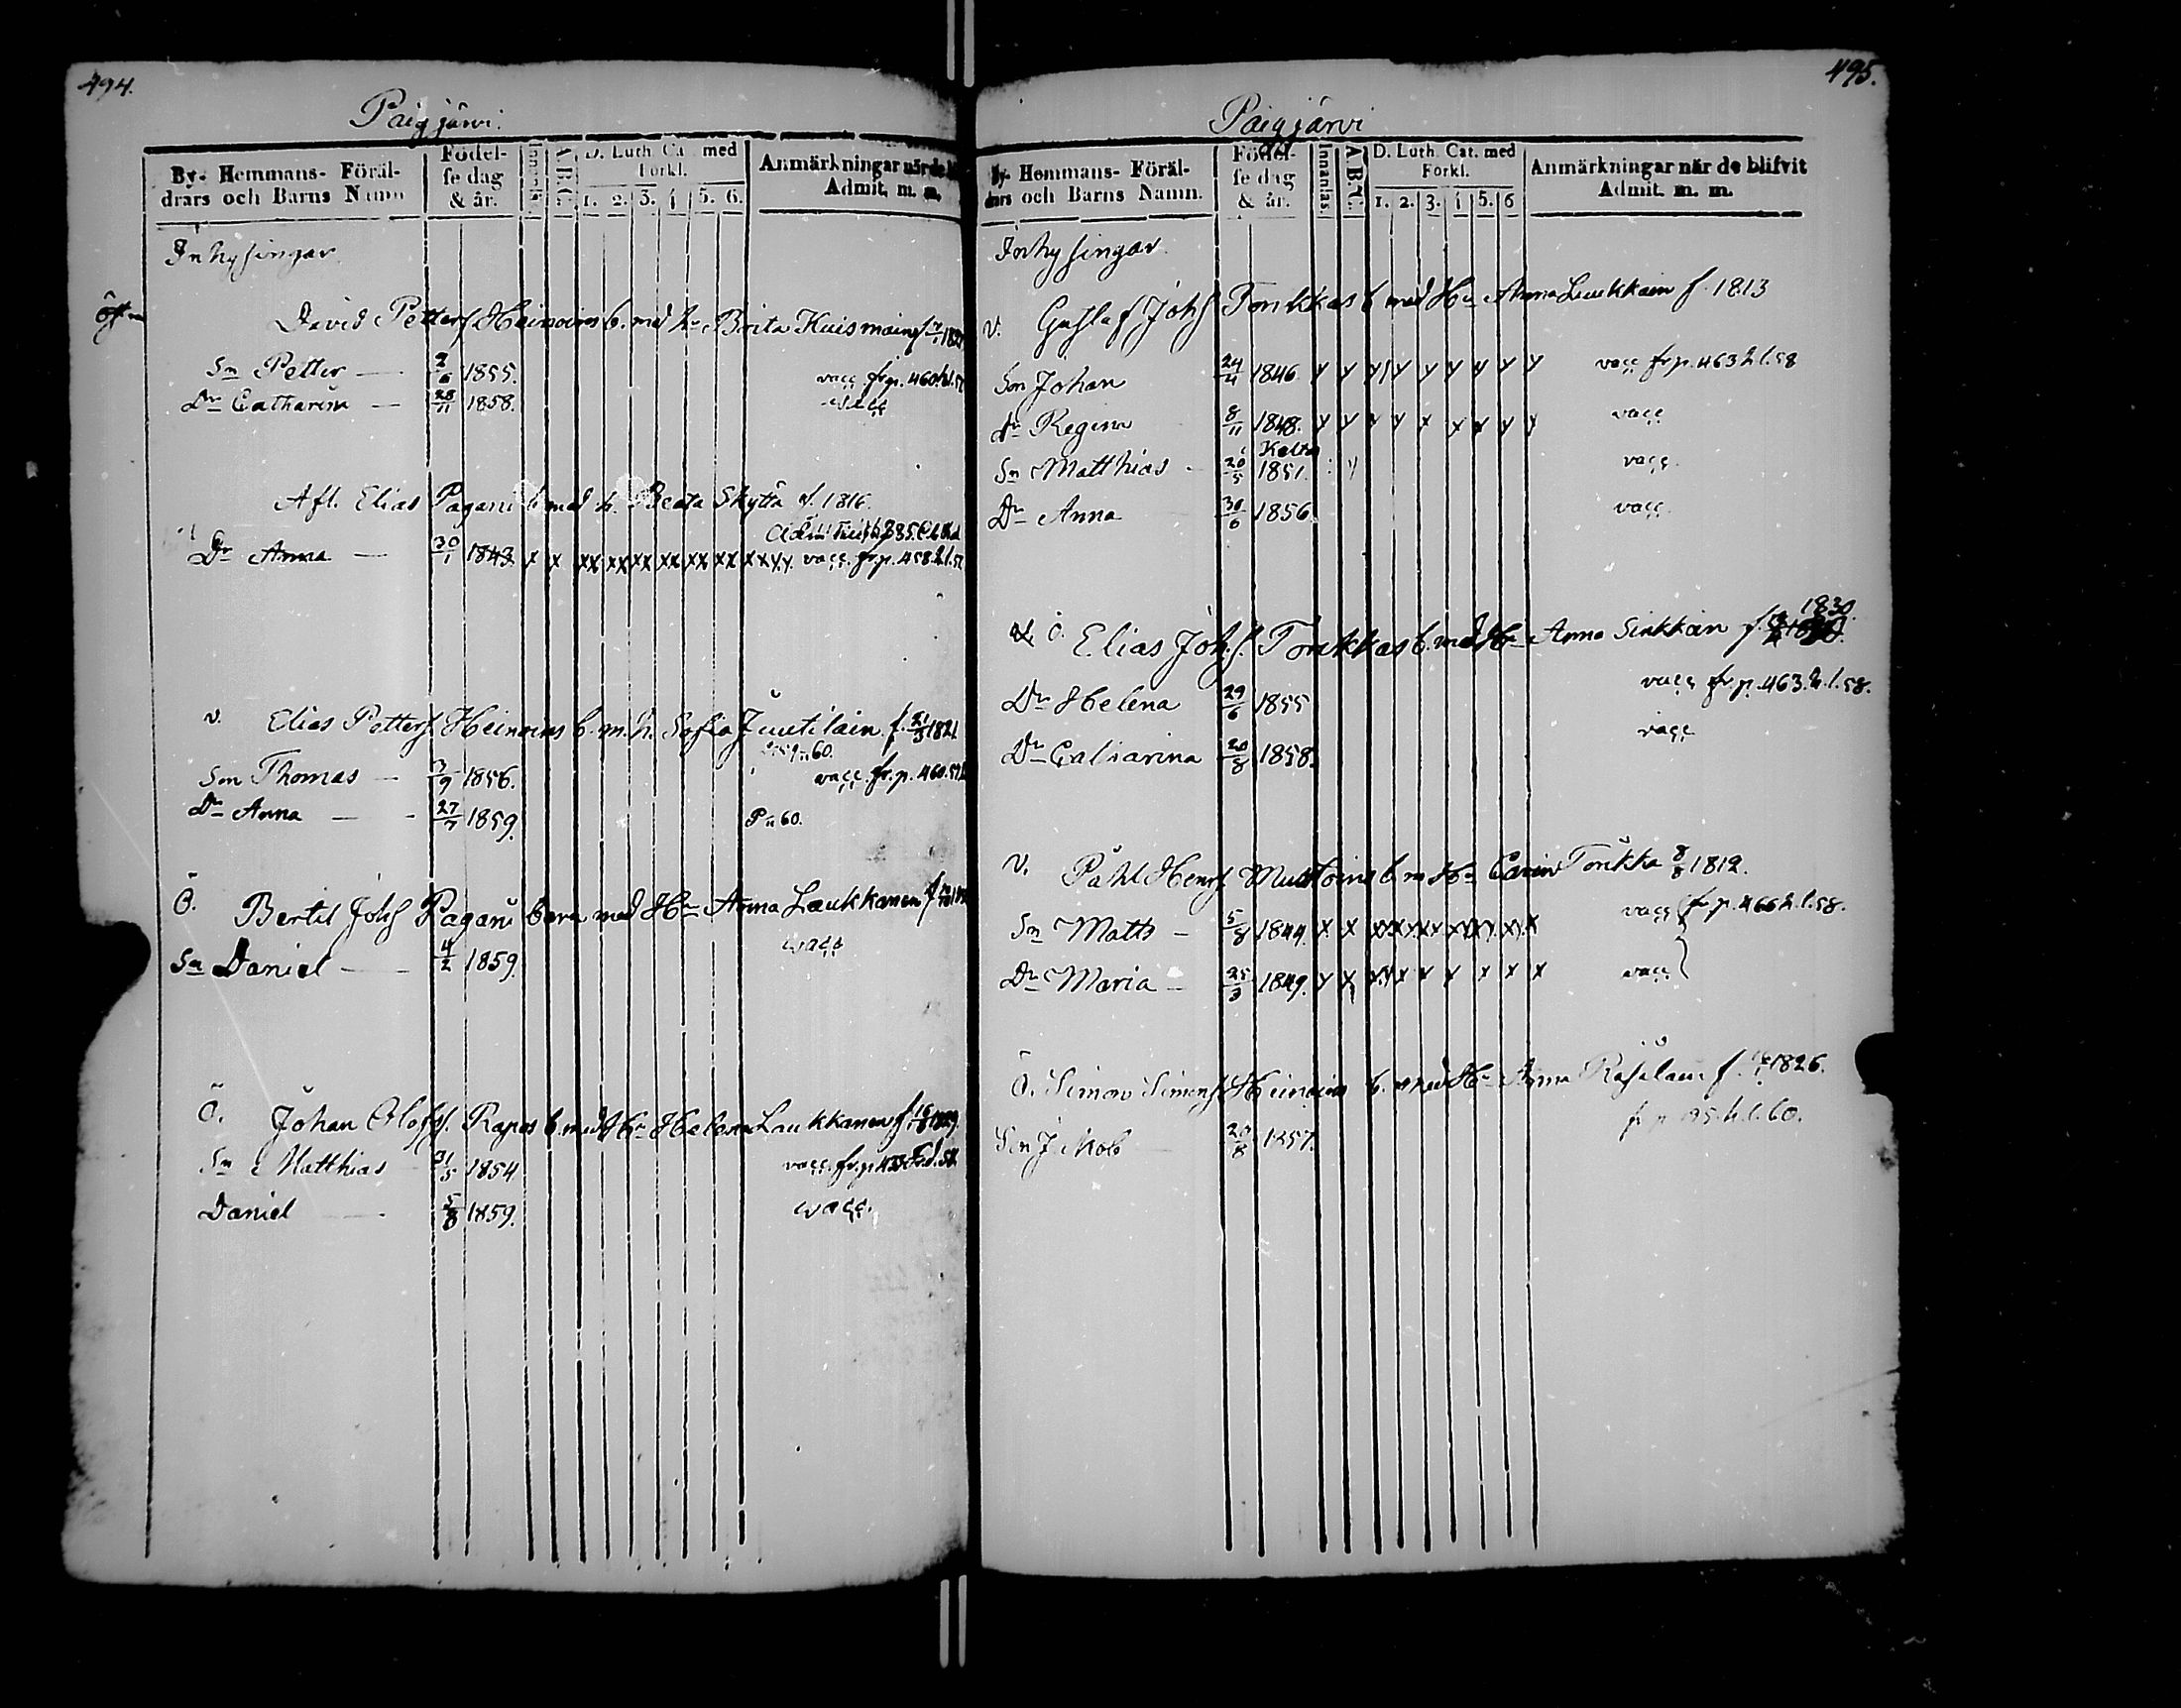 494.
Paigjärvi.
By- Hemmans- Föräl-
drars och Barns Namn
Födel-
se dag
& år.
A.B.C.
D. Luth. Cat. med
Förkl.
1. 2. 3. 4 5. 6.
Anmärkningar når de
Admit. m. m.
Inhysingar
David Petterss. Heinoins b. med h. Brita Kuismain
Sn Petter — 2/6 1855. vacc. fr p. 460
Dr Catharina — 28/11 1858. vacc
Afl. Elias Pagani b med h. Beata Skyttä f. 1816.
Dr Anna — 30/1 1843 x x xx xx xx xx xx xx x x y. y. vacc. fr. p. 458.h.l.57
v. Elias Petterss. Heinoins b. m. h. Sofia Juutilain f. 21/3 1821
Son Thomas — 3/9 1856. vacc. fr. p. 460.
Dr Anna — 27/7 1859. P 60.
Ö. Bertil Johss Pagani barn med Hu Anna Laukkanen f
Sn Daniel — 4/2 1859. vacc
Ö. Johan Olofss. Rapos b. med Hu Helena Laukkanen f. 16/8 1829.
Sn Matthias 31/5 1854 vacc. fr. p.
Daniel — 5/8 1859. vacc.
495.
Paigjärvi
By- Hemmans- Föräl-
drars och Barns Namn.
Födel-
se dag
& år.
Innanläs.
A.B.C.
D. Luth. Cat. med
Förkl.
1. 2. 3. 4 5. 6
Anmärkningar når de blifvit
Admit. m. m.
Inhysingar
v. Gustaf Johss Torikkas b. med Hu Anna Luukkain f. 1813
Son Johan 24/4 1846 y y y y y y y y y vacc fr p. 463 h.l.58
Dr Regina 8/11 1848. y y x y x x x y y vacc
Kolta
Sn Matthias - 20/5 1851. vacc.
Dr Anna 30/6 1856 vacc.
1830
Ö. Elias Johs. Torikkas b. med Hu Anna Sinkkain f.
Dr Helena 29/6 1855 vacc fr. p. 463. h.l.58.
Dr Catharina 20/8 1858. vacc
v. Påhl Henrs Mustoins b. m Hu Carin Torikka 8/8 1812.
Sn Matts — 5/8 1844. x x vacc fr p. 466 h.l.58.
Dr Maria — 25/3 1849. y x vacc
Ö. Simon Simonss Heinoins b. med Hu Anna Räsäläin f. 1826.
Son Jakob 20/8 1857. h.l.60.